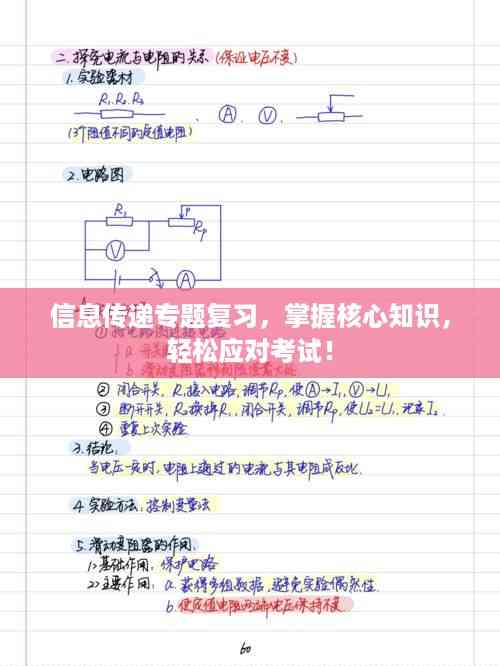 二.探究电流与电阻的关系(保证电压不变)
1.实验器材
R₁.R₂.R₃
、Ⓐ、Ⓥ、
(3个阻值不同的定值电阻)
2.电路图
R₁ P Rp
V
A
信息传递专题复习，掌握核心知识，
轻松应对考试！
② 闭合开关, R₁接入电路,调节Rp,使Ⓐ→I₁,Ⓥ→U₁
③ 断开开关, R₂换掉R₁,闭合开关,调节Rp,使U₂=U₁,记录I₂.
④ 重复上次实验
3.结论:
当电压一定时,电阻上通过的电流与其电阻成反比.
4.实验方法:控制变量法
5.滑动变阻器的作用:
1>基础作用:保护电路
2>主要作用: a.获得多组数据,避免实验偶然性.
b.使定值电阻两端电压保持不变
60